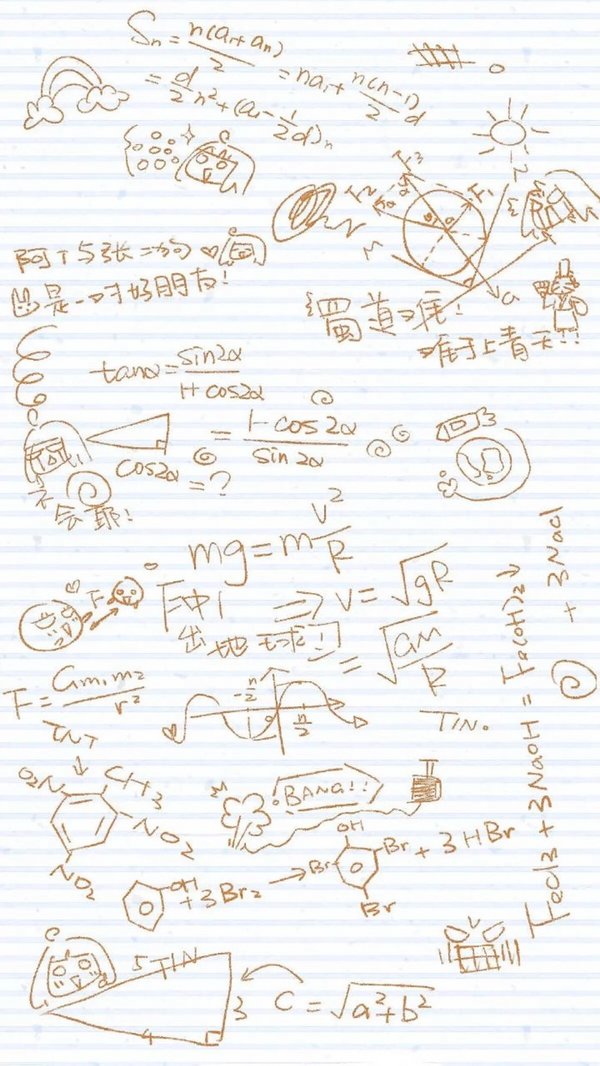 Sn = n(a₁+aₙ)/2 = na₁ + n(n-1)/2 d
= d/2 n² + (a₁ - 1/2 d)n
F₃
F₂
F₁
阿丁与张二狗
是一对好朋友!
蜀道难!
难于上青天!!
tanα = sin2α/1+cos2α
= 1-cos2α/sin2α
cos2α = ?
不会耶!
mg = m v²/R
F
「冲
出地球!」
⇒ v = √gR
= √GM/R
F = Gm₁m₂/r²
-π/2
π/2
TIN.
TNT
↓
O₂N
CH₃
NO₂
NO₂
BANG!!
OH
+ 3Br₂ →
OH
Br
Br
Br
+ 3HBr
FeCl3 + 3NaOH = Fe(OH)₂↓ + 3NaCl
5 TIN
3
4
C = √a²+b²